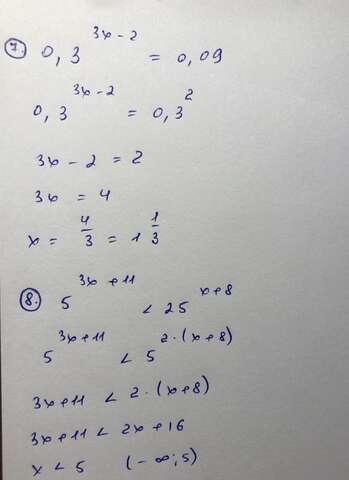 7. 0,3^(3x-2) = 0,09
0,3^(3x-2) = 0,3^2
3x - 2 = 2
3x = 4
x = 4/3 = 1 1/3
8. 5^(3x+11) < 25^(x+8)
5^(3x+11) < 5^(2·(x+8))
3x+11 < 2·(x+8)
3x+11 < 2x+16
x < 5 (-∞;5)